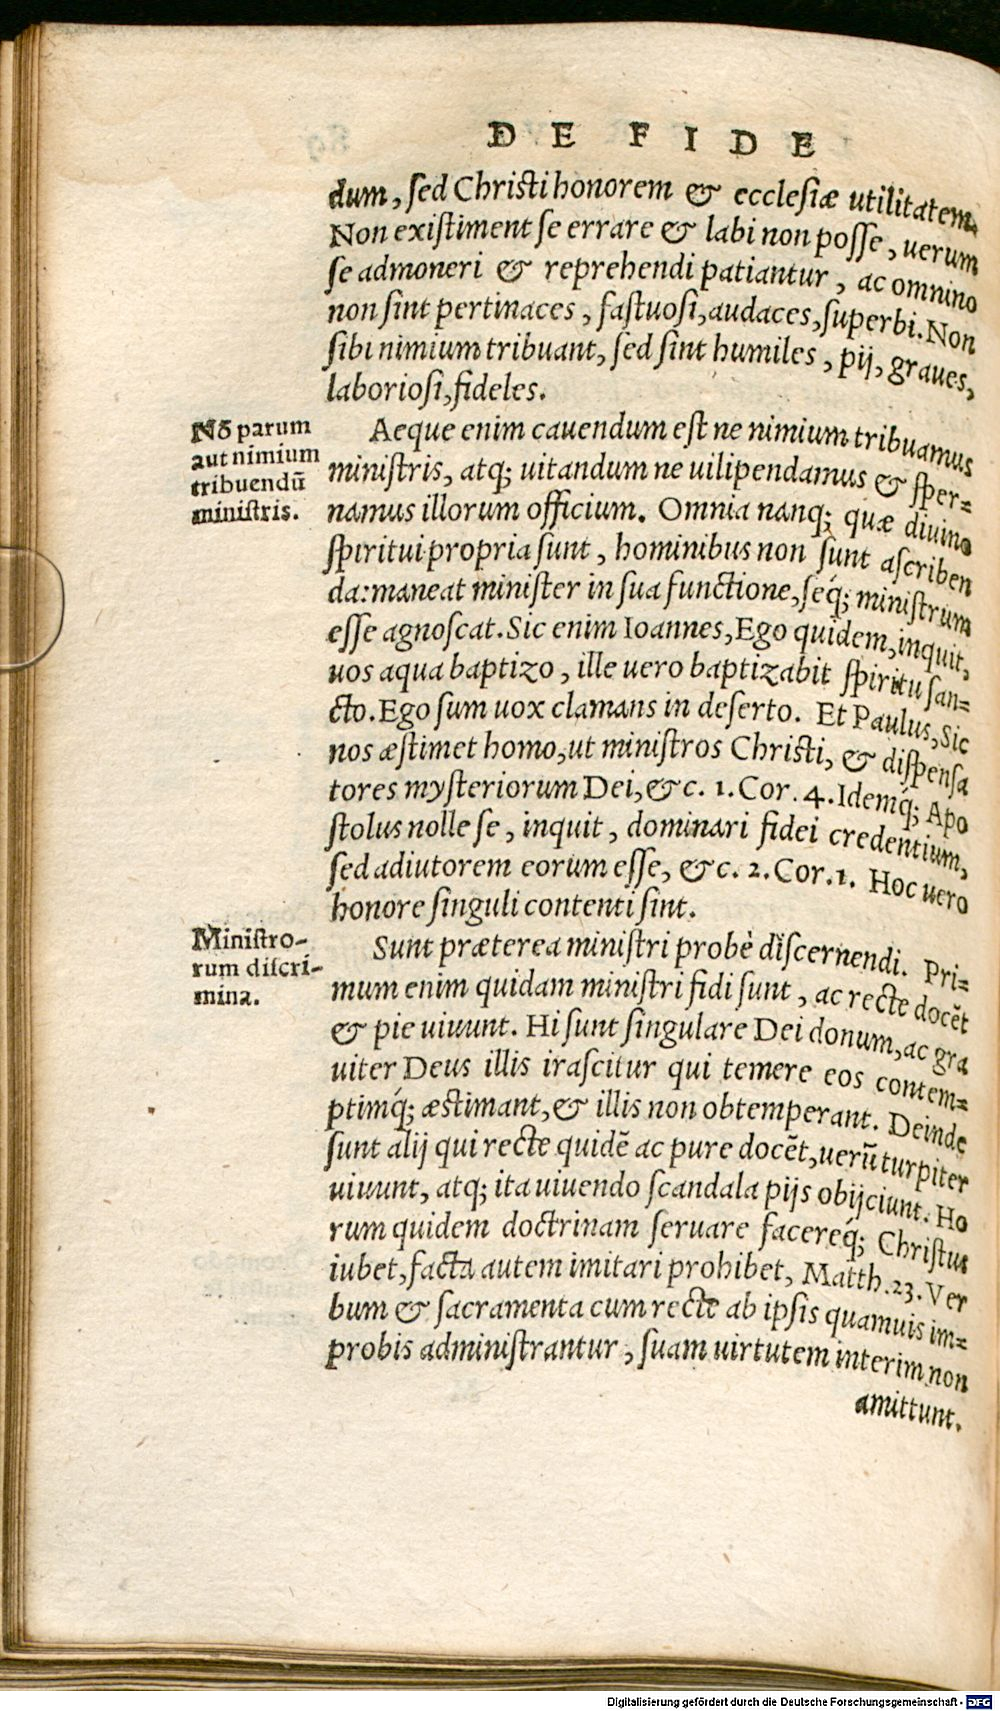 DE FIDE
dum, sed Christi honorem & ecclesiæ utilitatem.
Non existiment se errare & labi non posse, uerum
se admoneri & reprehendi patiantur, ac omnino
non sint pertinaces, fastuosi, audaces, superbi. Non
sibi nimium tribuant, sed sint humiles, pij, graues,
laboriosi, fideles.
Nō parum
aut nimium
tribuendū
ministris.
Aeque enim cauendum est ne nimium tribuamus
ministris, atq; uitandum ne uilipendamus & sper=
namus illorum officium. Omnia nanq; quæ diuino
spiritui propria sunt, hominibus non sunt ascriben
da: maneat minister in sua functione, seq́; ministrum
esse agnoscat. Sic enim Ioannes, Ego quidem, inquit,
uos aqua baptizo, ille uero baptizabit spiritu san=
cto. Ego sum uox clamans in deserto. Et Paulus, Sic
nos æstimet homo, ut ministros Christi, & dispensa
tores mysteriorum Dei, &c. 1. Cor. 4. Idemq́; Apo
stolus nolle se, inquit, dominari fidei credentium,
sed adiutorem eorum esse, &c. 2. Cor. 1. Hoc uero
honore singuli contenti sint.
Ministro-
rum discri-
mina.
Sunt præterea ministri probè discernendi. Pri=
mum enim quidam ministri fidi sunt, ac recte docēt
& pie uiuunt. Hi sunt singulare Dei donum, ac gra
uiter Deus illis irascitur qui temere eos contem=
ptimq́; æstimant, & illis non obtemperant. Deinde
sunt alij qui recte quidē ac pure docēt, uerū turpiter
uiuunt, atq; ita uiuendo scandala pijs obijciunt. Ho
rum quidem doctrinam seruare facereq́; Christus
iubet, facta autem imitari prohibet, Matth. 23. Ver
bum & sacramenta cum recte ab ipsis quamuis im=
probis administrantur, suam uirtutem interim non
amittunt.
Digitalisierung gefördert durch die Deutsche Forschungsgemeinschaft - DFG